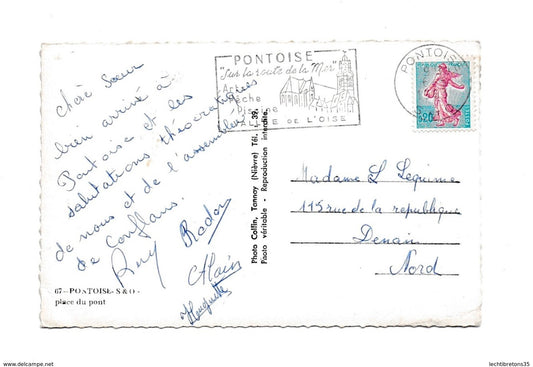 chère Sœur
bien arrivé à
Pontoise et les
salutations théocratiques
de nous et de l'assemblée
de Conflans.
Ruy Rador
Alain
Huguette
67 - PONTOISE S & O -
place du pont
Photo Combier, Tannay (Nièvre) Tél. 39.
Photo véritable - Reproduction interdite.
PONTOISE
"Sur la route de la Mer"
Art
Pêche
VALLEE DE L'OISE
PONTOISE
0,20
POSTES
Madame L Lequimme
115 rue de la republique
Denain
Nord
www.delcampe.net
lechtibretons35